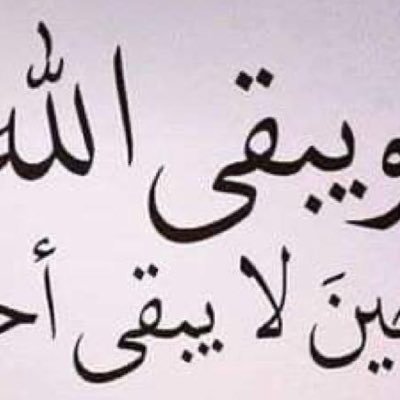 ويبقى الله
حينَ لا يبقى أحـ